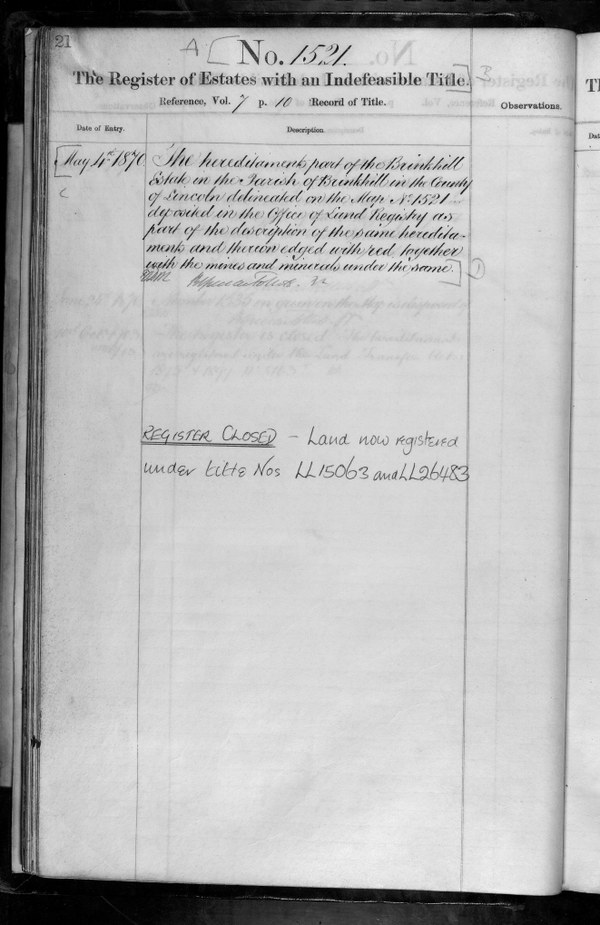 21
A
No. 1521.
The Register of Estates with an Indefeasible Title.
B
Reference, Vol. 7 p. 10 Record of Title.
Observations.
Date of Entry.
Description.
May 4th 1870
The hereditaments part of the Brinkhill
Estate in the Parish of Brinkhill in the County
of Lincoln delineated on the Map No. 1521
deposited in the Office of Land Registry as
part of the description of the same heredita-
ments and thereon edged with red, together
with the mines and minerals under the same.
C
D
REGISTER CLOSED – Land now registered
under title Nos LL15063 and LL26483